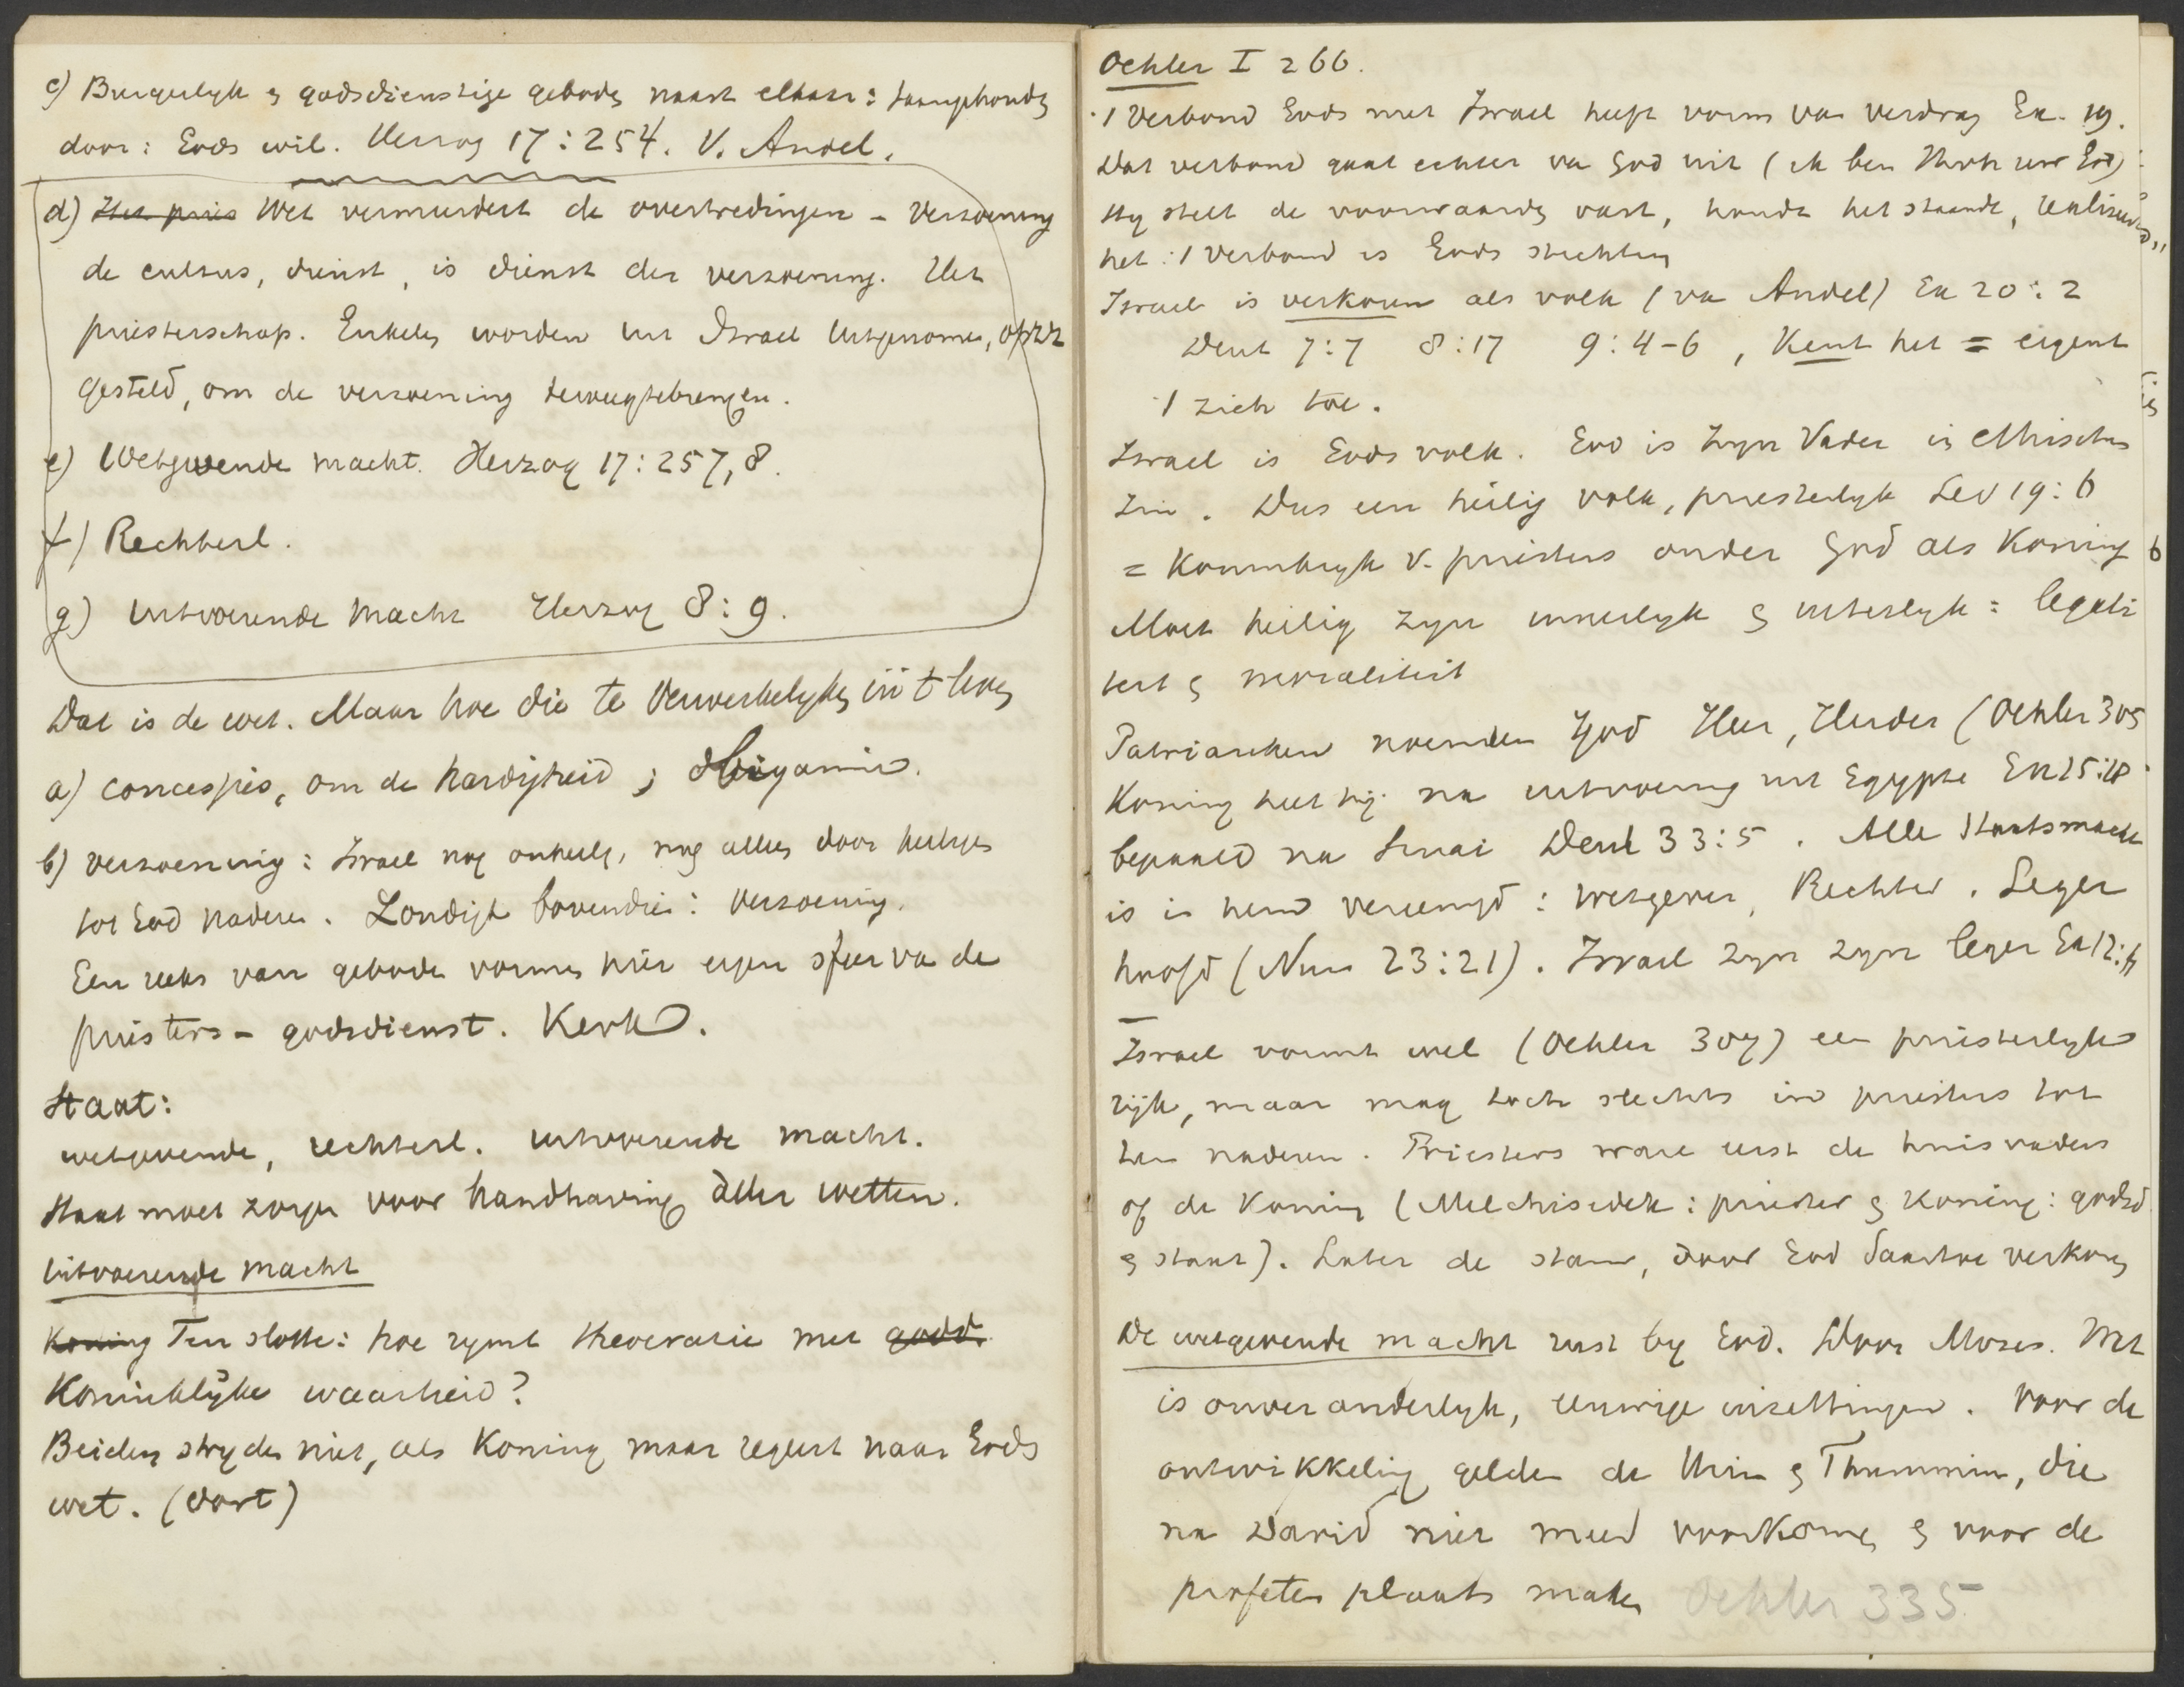 c) Burgerlijk & godsdienstige geboden naast elkaar: saamgehouden
door: Gods wil. Herzog 17:254. V. Andel.
d) Het pries Wet vermeerdert de overtredingen - Verzoening
de cultus, dienst, is dienst der verzoening. Het
priesterschap. Enkelen worden uit Israel uitgenomen, apart
gesteld, om de verzoening teweegtebrengen.
e) Wetgevende macht. Herzog 17:257,8.
f) Rechterl.
g) uitvoerende macht Herzog 8:9.
Dat is de wet. Maar hoe die te Verwerkelijken in 't leven
a) concessies, om de hardigheid; bigamie.
b) verzoening: Israel nog onheilig, mag alleen door heiliges
tot God naderen. Zondigt bovendien: verzoening.
Een reeks van geboden vormen hier eigen sfeer van de
priesters - godsdienst. Kerk.
Staat:
wetgevende, rechterl. uitvoerende macht.
Staat moet zorgen voor handhaving aller wetten.
Uitvoerende macht
Koning Ten slotte: hoe rijmt theocratie met godd.
Koninklijke waarheid?
Beiden strijden niet, als Koning maar regeert naar Gods
wet. (Dort)
Oehler I 266.
't Verbond Gods met Israel heeft vorm van verdrag Ex. 19.
Dat verbond gaat echter van God uit (ik ben Jhvh uw God)
Hij stelt de voorwaarden vast, houdt het staande, realiseert
het: 't Verbond is Gods stichting
Israel is verkoren als volk (van Andel) Ex 20:2
Deut 7:7 8:17 9:4-6, Kent het = eigent
't zich toe.
Israel is Gods volk. God is zijn Vader in ethischen
zin. Dus een heilig volk, priesterlijk Lev 19:6
= Koninkrijk v. priesters onder God als Koning
Moet heilig zijn innerlijk & uiterlijk: legali
teit & moraliteit
Patriarchen noemden God Heer, Herder (Oehler 305
Koning heet hij na uitvoering uit Egypte Ex 15:18
bepaald na Sinai Deut 33:5. Alle Staatsmacht
is in hem vereenigd: Wetgever, Rechter. Leger
hoofd (Num 23:21). Israel zijn zijn leger Ex 12:41
Israel vormt wel (Oehler 307) een priesterlijk
rijk, maar mag toch slechts in priesters tot
hem naderen. Priesters waren eerst de huisvaders
of de Koning (Melchisedek: priester & Koning: godsd
& staat). Later de stam, door God daartoe verkoren
De wetgevende macht rust bij God. Door Mozes. Wet
is onveranderlijk, eeuwige inzettingen. Voor de
ontwikkeling gelden de Urim & Thummim, die
na David niet meer voorkomen & voor de
profeten plaats maken Oehler 335